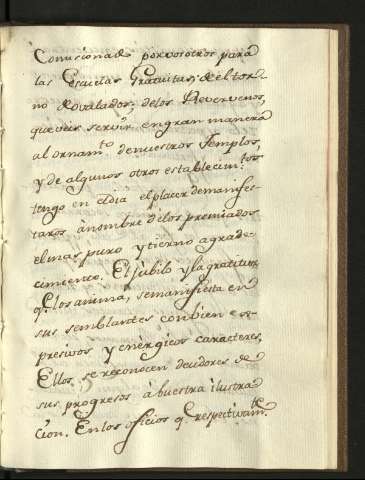 Comisionado por vosotros para
las Escuelas Gratuitas, de el tor-
no de ovalados, de los Reververos,
que veis servir en gran manera
al ornam.to de nuestros Templos,
y de algunos otros establecim.tos
tengo en el dia el placer de manifes-
taros à nombre de los premiados
el mas puro y tierno agrade-
cimiento. El júbilo y la gratitud
q.e los anima, se manifiesta en
sus semblantes con bien es-
presivos y energicos caracteres,
Ellos se reconocen deudores de
sus progresos à buestra ilustra-
cion. En los oficios q.e respectivam.te